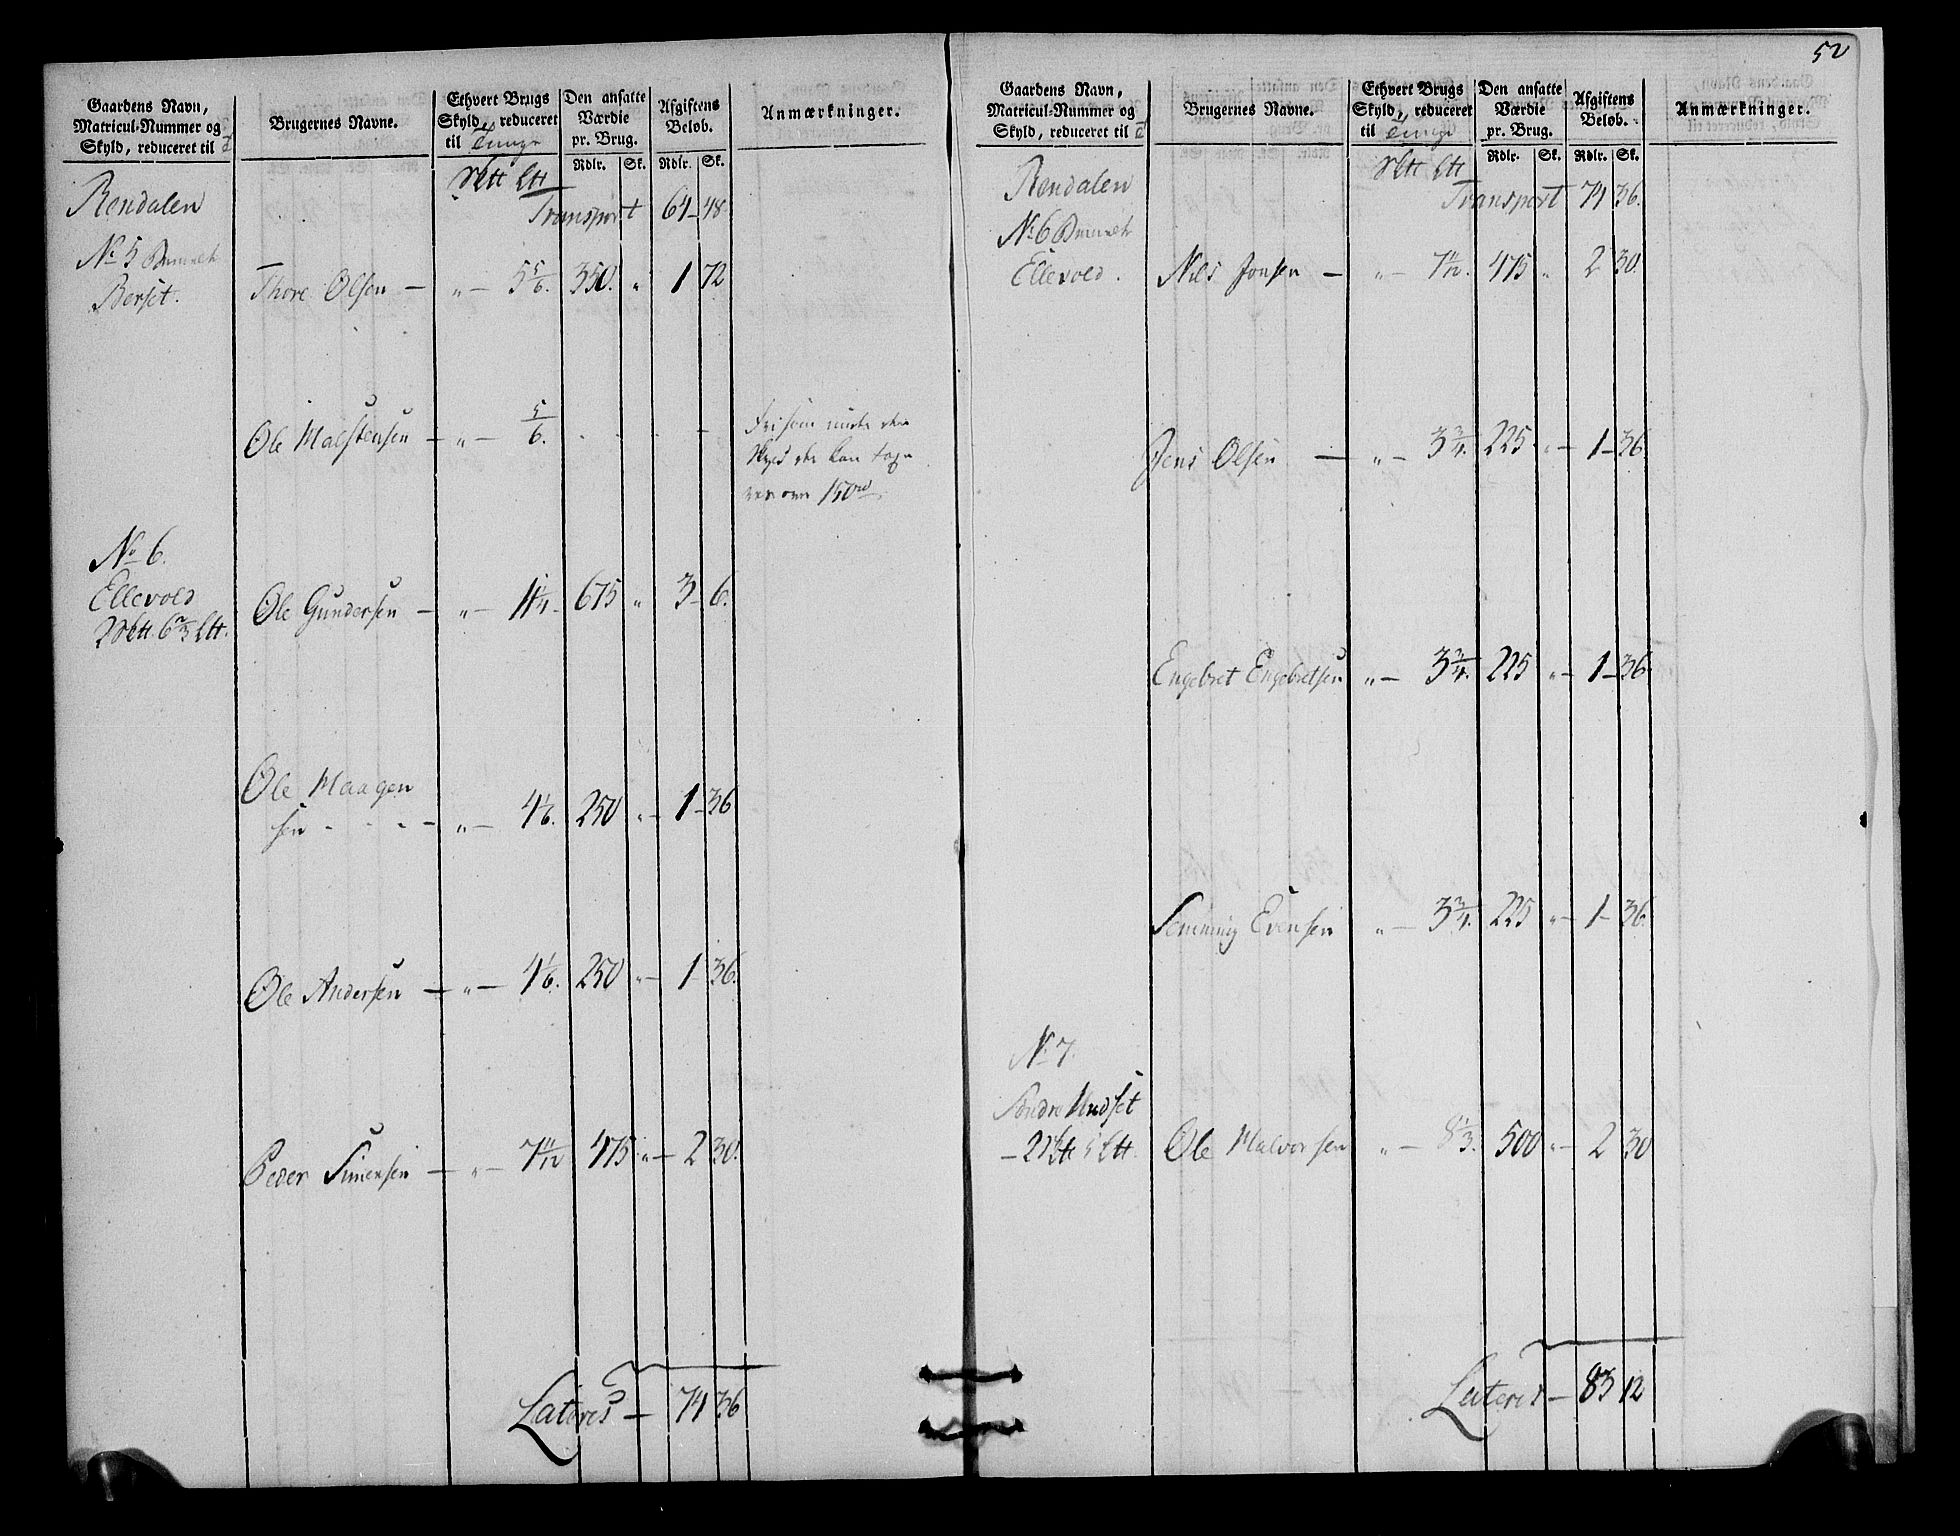 52
Gaardens Navn,
Matricul-Nummer og
Skyld, reduceret til
Brugernes Navne.
Ethvert Brugs
Skyld, reduceret
til Tunge
Den ansatte
Værdie
pr. Brug.
Afgiftens
Beløb.
Anmærkninger.
Rdlr. Sk. Rdlr. Sk.
Rendalen
Transport 64 48
No 5
Berset.
Thore Olsen — „ — 5 5/6. 350. „ 1 72
Ole Malstensen — „ — 5/6.
150 rd
No 6.
Ellevold
Ole Gundersen — „ — 11 1/4 675 „ 3 — 6.
Ole Maagen
sen — „ — 4 1/6. 250 „ — 1 — 36
Ole Andersen — „ — 4 1/6. 250 „ — 1 — 36.
Peder Simensen — „ — 7 11/12 475 „ — 2 30.
Lateris — 74 36
Gaardens Navn,
Matricul-Nummer og
Skyld, reduceret til
Brugernes Navne.
Ethvert Brugs
Skyld, reduceret
til Tunge
Den ansatte
Værdie
pr. Brug.
Afgiftens
Beløb.
Anmærkninger.
Rdlr. Sk. Rdlr. Sk.
Rendalen
Transport 74 36.
No 6
Ellevold.
Nils Jonsen — „ — 7 11/12. 475 „ 2 30.
Jens Olsen — „ — 3 3/4. 225 „ — 1 — 36
Engebret Engebretsen „ — 3 3/4. 225 „ — 1 — 36
Semming Evensen „ — 3 3/4. 225 „ — 1 — 36.
No 7.
Søndre Undset
Ole Halvorsen „ — 8 1/3. 500 „ — 2 30
Lateris — 83 12